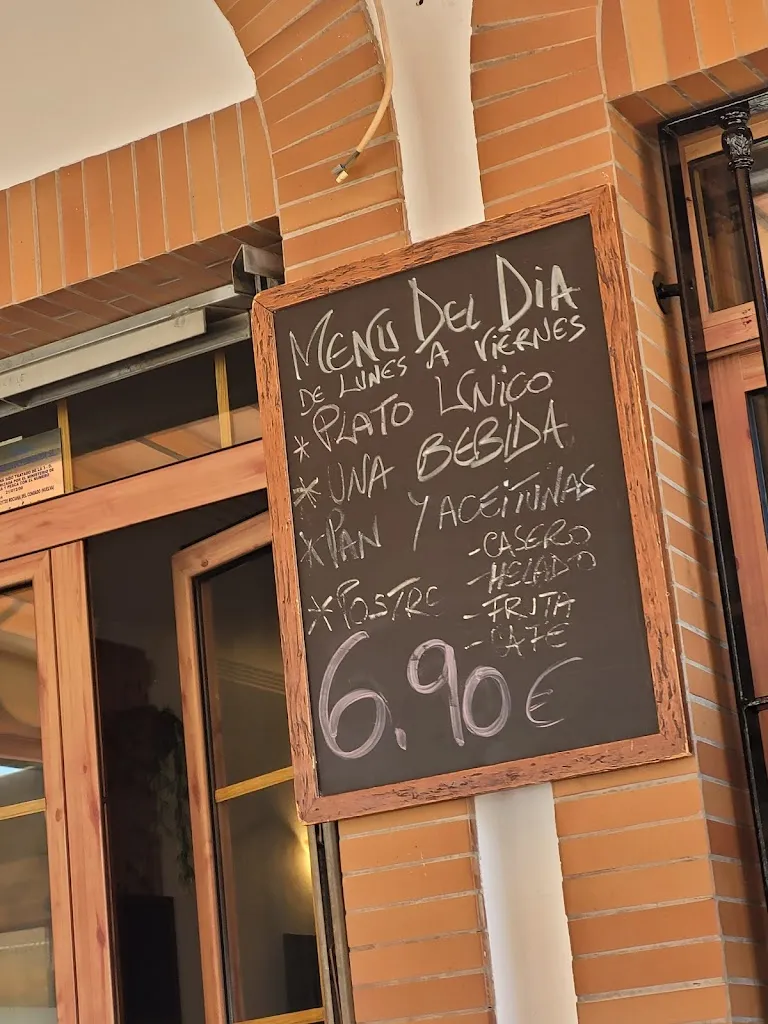 MENU DEL DiA
DE LUNES A ViERNES
* PLATO UNiCO
* UNA BEBiDA
* PAN Y ACEiTUNAS
* POSTRE - CASERO
- HELADO
- FRUTA
- CAFE
6.90 €